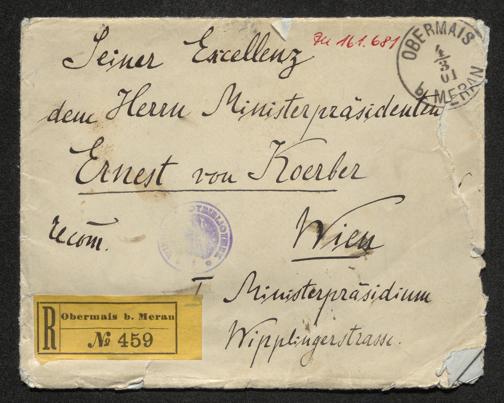 Zu 161.681
OBERMAIS
4/3
01
b. MERAN
Seiner Excellenz
dem Herrn Ministerpräsidenten
Ernest von Koerber
recom.
Wien
I Ministerpräsidium
Wipplingerstrasse.
R
Obermais b. Meran
No 459